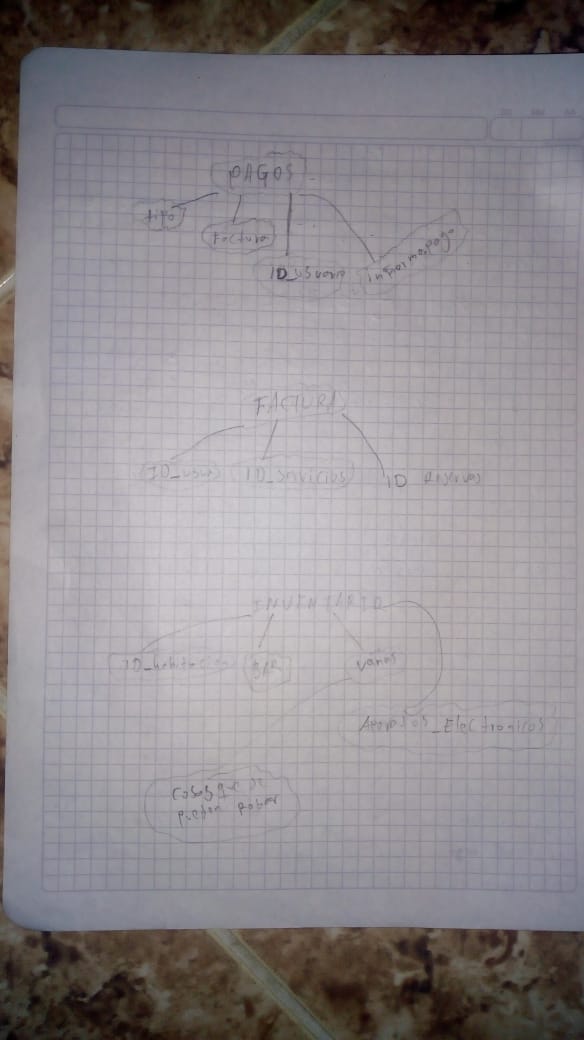 PAGOS
tipo
Factura
ID_usuario
FACTURA
ID_usuario
ID_servicios
ID Reservas
INVENTARIO
ID_habitacion
BAR
varios
Aparatos_Electronicos
cosas que se
pueden robar